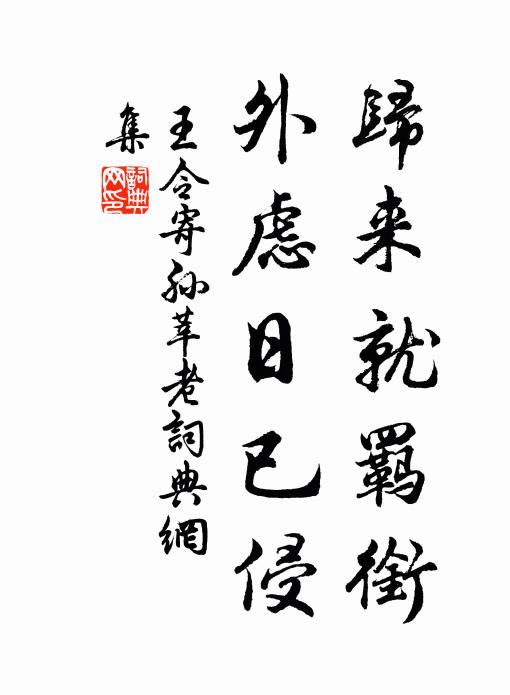 歸来就羈銜
外慮日已侵
王令寄孫莘老詞典網
集
詞典
网印